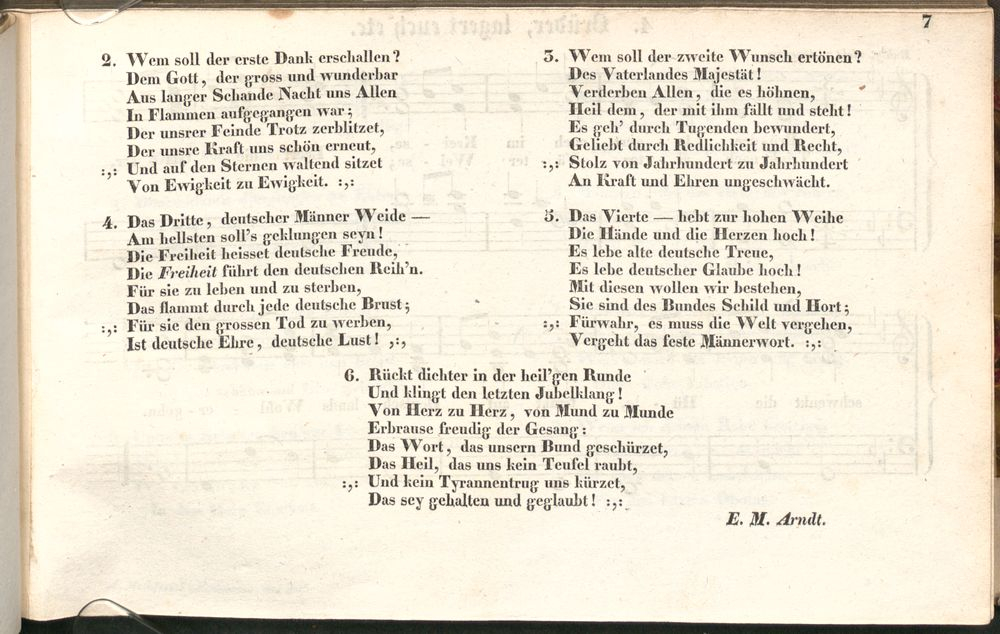 7
2. Wem soll der erste Dank erschallen?
Dem Gott, der gross und wunderbar
Aus langer Schande Nacht uns Allen
In Flammen aufgegangen war;
Der unsrer Feinde Trotz zerblitzet,
Der unsre Kraft uns schön erneut,
:,: Und auf den Sternen waltend sitzet
Von Ewigkeit zu Ewigkeit. :,:
3. Wem soll der zweite Wunsch ertönen?
Des Vaterlandes Majestät!
Verderben Allen, die es höhnen,
Heil dem, der mit ihm fällt und steht!
Es geh' durch Tugenden bewundert,
Geliebt durch Redlichkeit und Recht,
:,: Stolz von Jahrhundert zu Jahrhundert
An Kraft und Ehren ungeschwächt.
4. Das Dritte, deutscher Männer Weide —
Am hellsten soll's geklungen seyn!
Die Freiheit heisset deutsche Freude,
Die Freiheit führt den deutschen Reih'n.
Für sie zu leben und zu sterben,
Das flammt durch jede deutsche Brust;
:,: Für sie den grossen Tod zu werben,
Ist deutsche Ehre, deutsche Lust! ,:,
5. Das Vierte — hebt zur hohen Weihe
Die Hände und die Herzen hoch!
Es lebe alte deutsche Treue,
Es lebe deutscher Glaube hoch!
Mit diesen wollen wir bestehen,
Sie sind des Bundes Schild und Hort;
:,: Fürwahr, es muss die Welt vergehen,
Vergeht das feste Männerwort. :,:
6. Rückt dichter in der heil'gen Runde
Und klingt den letzten Jubelklang!
Von Herz zu Herz, von Mund zu Munde
Erbrause freudig der Gesang:
Das Wort, das unsern Bund geschürzet,
Das Heil, das uns kein Teufel raubt,
:,: Und kein Tyrannentrug uns kürzet,
Das sey gehalten und geglaubt! :,:
E. M. Arndt.